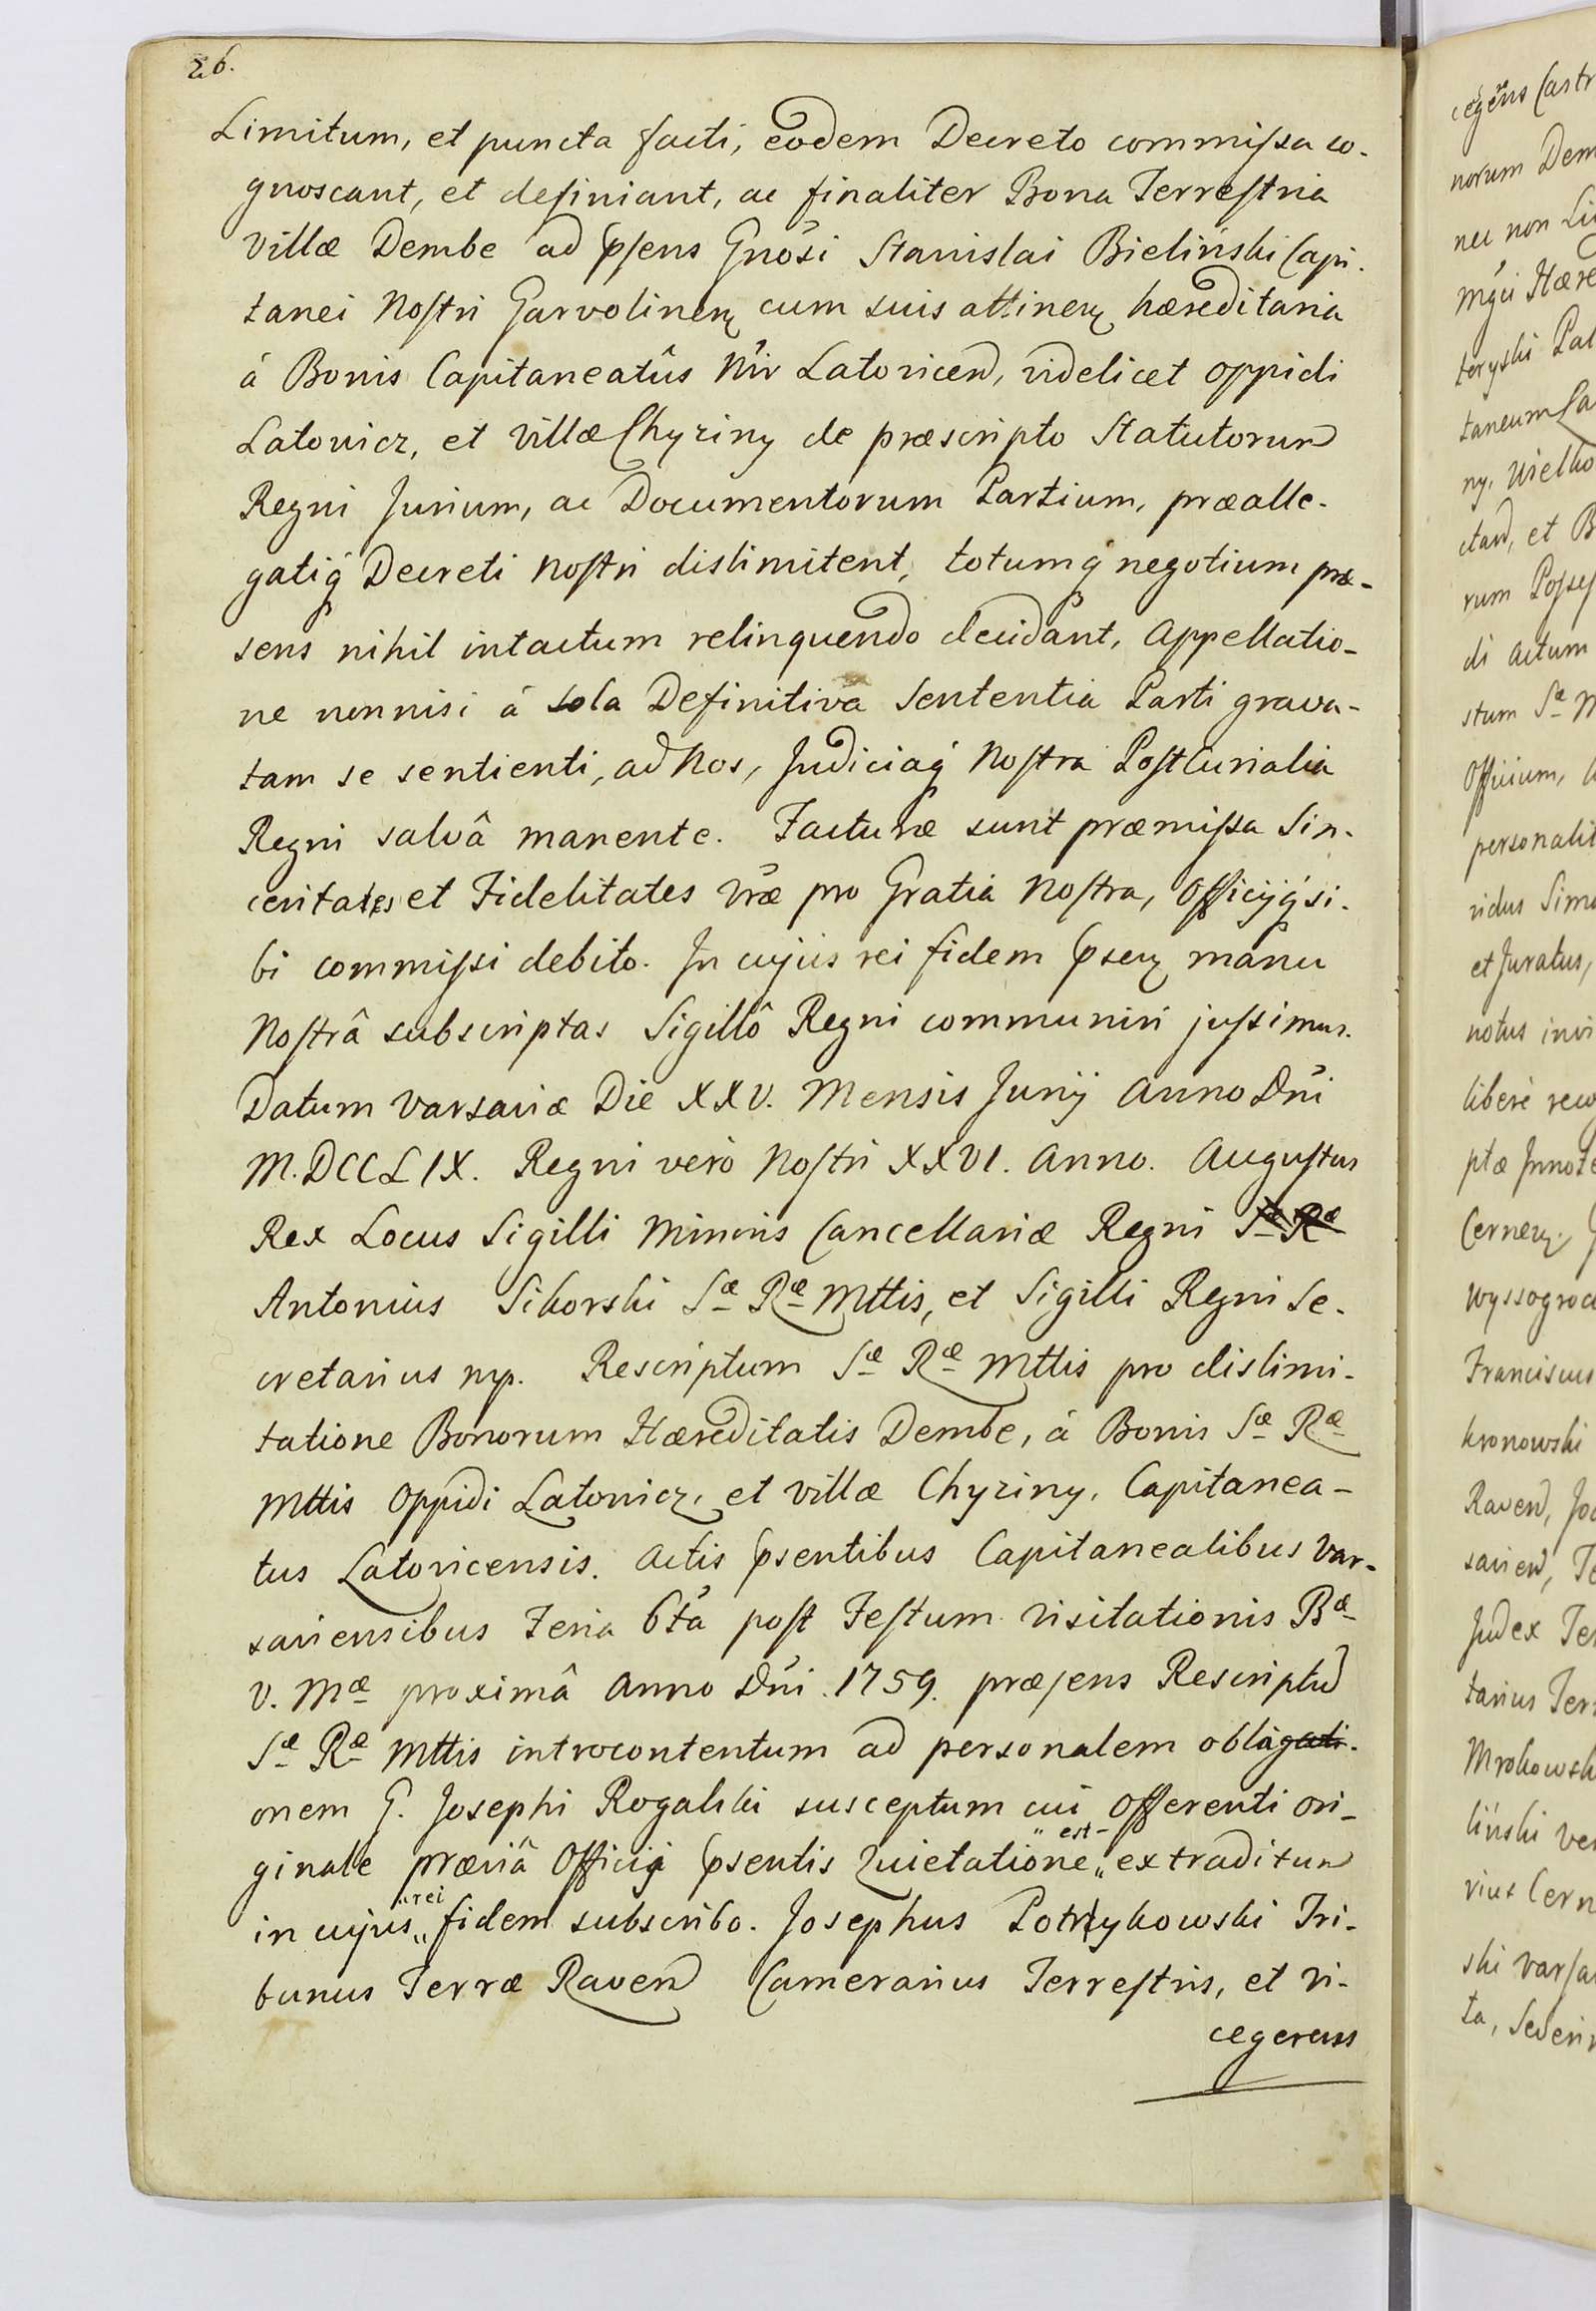 26.
Limitum, et puncta facti, eodem Decreto commiſsa co-
gnoscant, et definiant, ac finaliter Bona Terreſtria
villæ Dembe ad pſens Gnosi Stanislai Bieliński Capi-
tanei Noſtri Garvolinen cum suis attinen hæreditaria
à Bonis Capitaneatûs Nri Latovicen, videlicet oppidi
Latovicz, et villæ Chyziny de præscripto Statutorum
Regni Jurium, ac Documentorum Partium, præalle-
gatiq Decreti Noſtri dislimitent, totumq negotium præ-
sens nihil intactum relinquendo decidant, Appellatio-
ne nonnisi à sola Definitiva Sententia Parti grava-
tam se sentienti, ad Nos, Judiciaq Noſtra Poſtcurialia
Regni salvâ manente. Facturæ sunt præmiſsa Sin-
ceritates et Fidelitates Vræ pro Gratia Noſtra, Officijq si-
bi commiſsi debito. In cujus rei fidem pſen manu
Noſtrâ subscriptas Sigillô Regni communiri juſsimus.
Datum Varsaviæ Die XXV. Mensis Junij Anno Dni
M.DCCLIX. Regni verò Noſtri XXVI. Anno. Auguſtus
Rex Locus Sigilli Minoris Cancellariæ Regni Sæ Ræ
Antonius Sikorski Sæ Ræ Mttis, et Sigilli Regni Se-
cretarius mp. Rescriptum Sæ Ræ Mttis pro dislimi-
tatione Bonorum Hæreditatis Dembe, à Bonis Sæ Ræ
Mttis Oppidi Latovicz, et villæ Chyziny, Capitanea-
tus Latovicensis. Actis pſentibus Capitanealibus Var-
saviensibus Feria 6ta poſt Feſtum Visitationis Bæ
V. Mæ proximâ Anno Dni 1759. præſens Rescriptum
Sæ Ræ Mttis introcontentum ad personalem oblagati-
onem G. Josephi Rogalski susceptum cui Offerenti ori-
ginale præviâ Officij pſentis Quietatione „ est extraditum
in cujus „ rei fidem subscribo. Josephus Potrykowski Tri-
bunus Terræ Raven Camerarius Terreſtris, et Vi-
cegerens
cegens Castr
norum Dem
nec non Li
Mgci Hære
teryski Pal
taneum Ca
ny. Wielko
ctan, et B
rum Poſseſ
di actum
stum Sæ M
Officium,
personalit
vidus Simo
et Juratus,
notus invi
liberè reco
ptæ Innote
Cernen
Wyssogrod
Franciscus
kronowski
Raven, Jo
savien, Te
Judex Ter
tarius Ter
Mrokowsk
liński ver
rius Cern
ski Varſa
ta, Severin